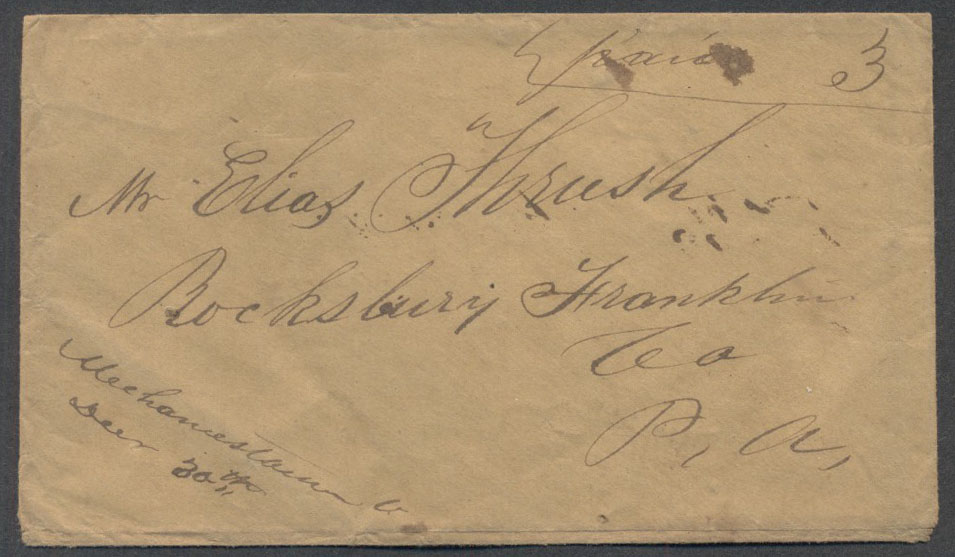 Paid 3
Mr Elias Thrush
Rocksbury Franklin
Co
P, A,
Mechanicstown O
Decr 30th